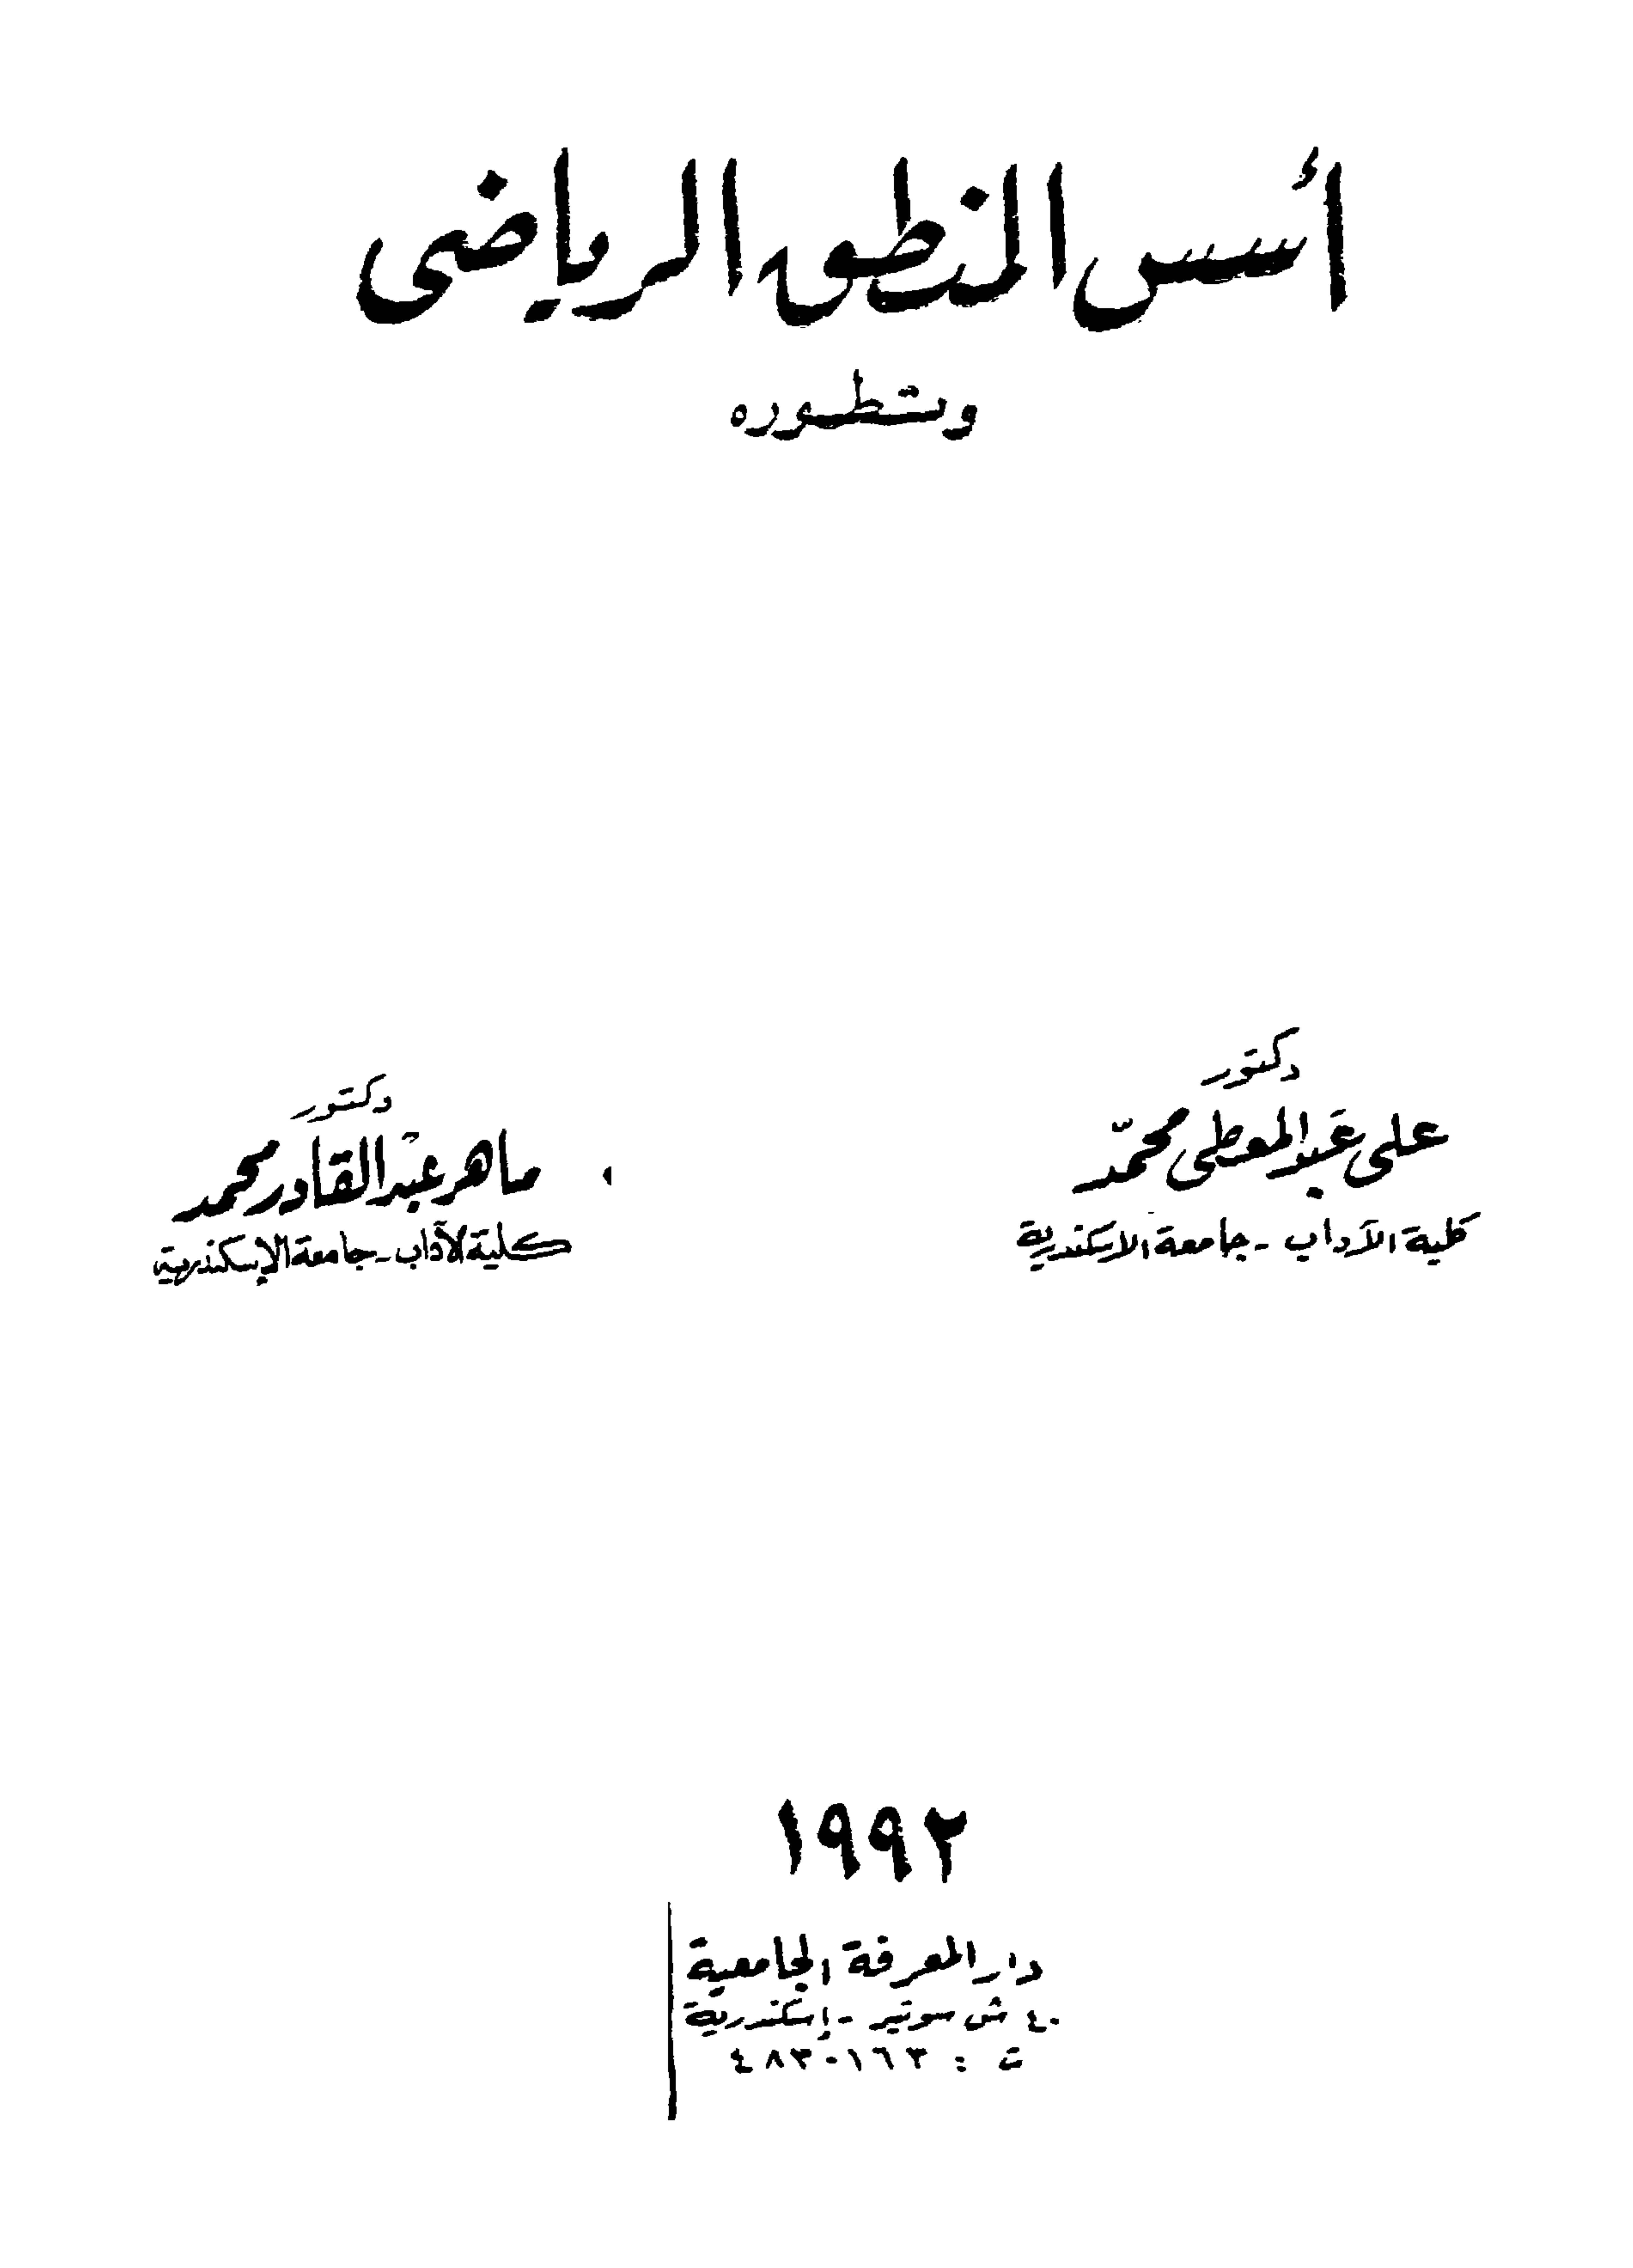 أسس المنطق الرياضى
وتطوره
دكتور
على عبد المعطى محمّد
كلية الآداب - جامعة الاسكندرية
دكتور
ماهر عبد القادر محمد
كلية الآداب - جامعة الإسكندرية
١٩٩٢
دار المعرفة الجامعية
٤٠ ش سوتير - إسكندرية
ت : ٤٨٣٠١٦٣